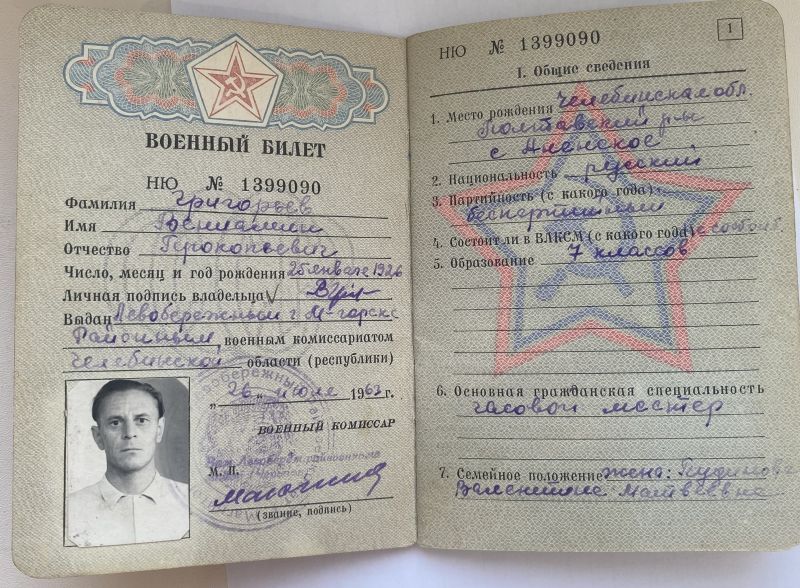 ВОЕННЫЙ БИЛЕТ
НЮ № 1399090
Фамилия Григорьев
Имя
Отчество Прокопьевич
Число, месяц и год рождения 25 января 1926
Личная подпись владельца
Выдан Левобережным г. М-горска
Районным, военным комиссариатом
Челябинской области (республики)
„ 26 " июля 1963 г.
ВОЕННЫЙ КОМИССАР
М. П.
(звание, подпись)
НЮ № 1399090
1
I. Общие сведения
1. Место рождения Челябинская обл.
Полтавский р-н
с
2. Национальность русский
3. Партийность (с какого года)
беспартийный
4. Состоит ли в ВЛКСМ (с какого года)
5. Образование 7 классов
6. Основная гражданская специальность
часовой мастер
7. Семейное положение жена:
Валентина Матвеевна